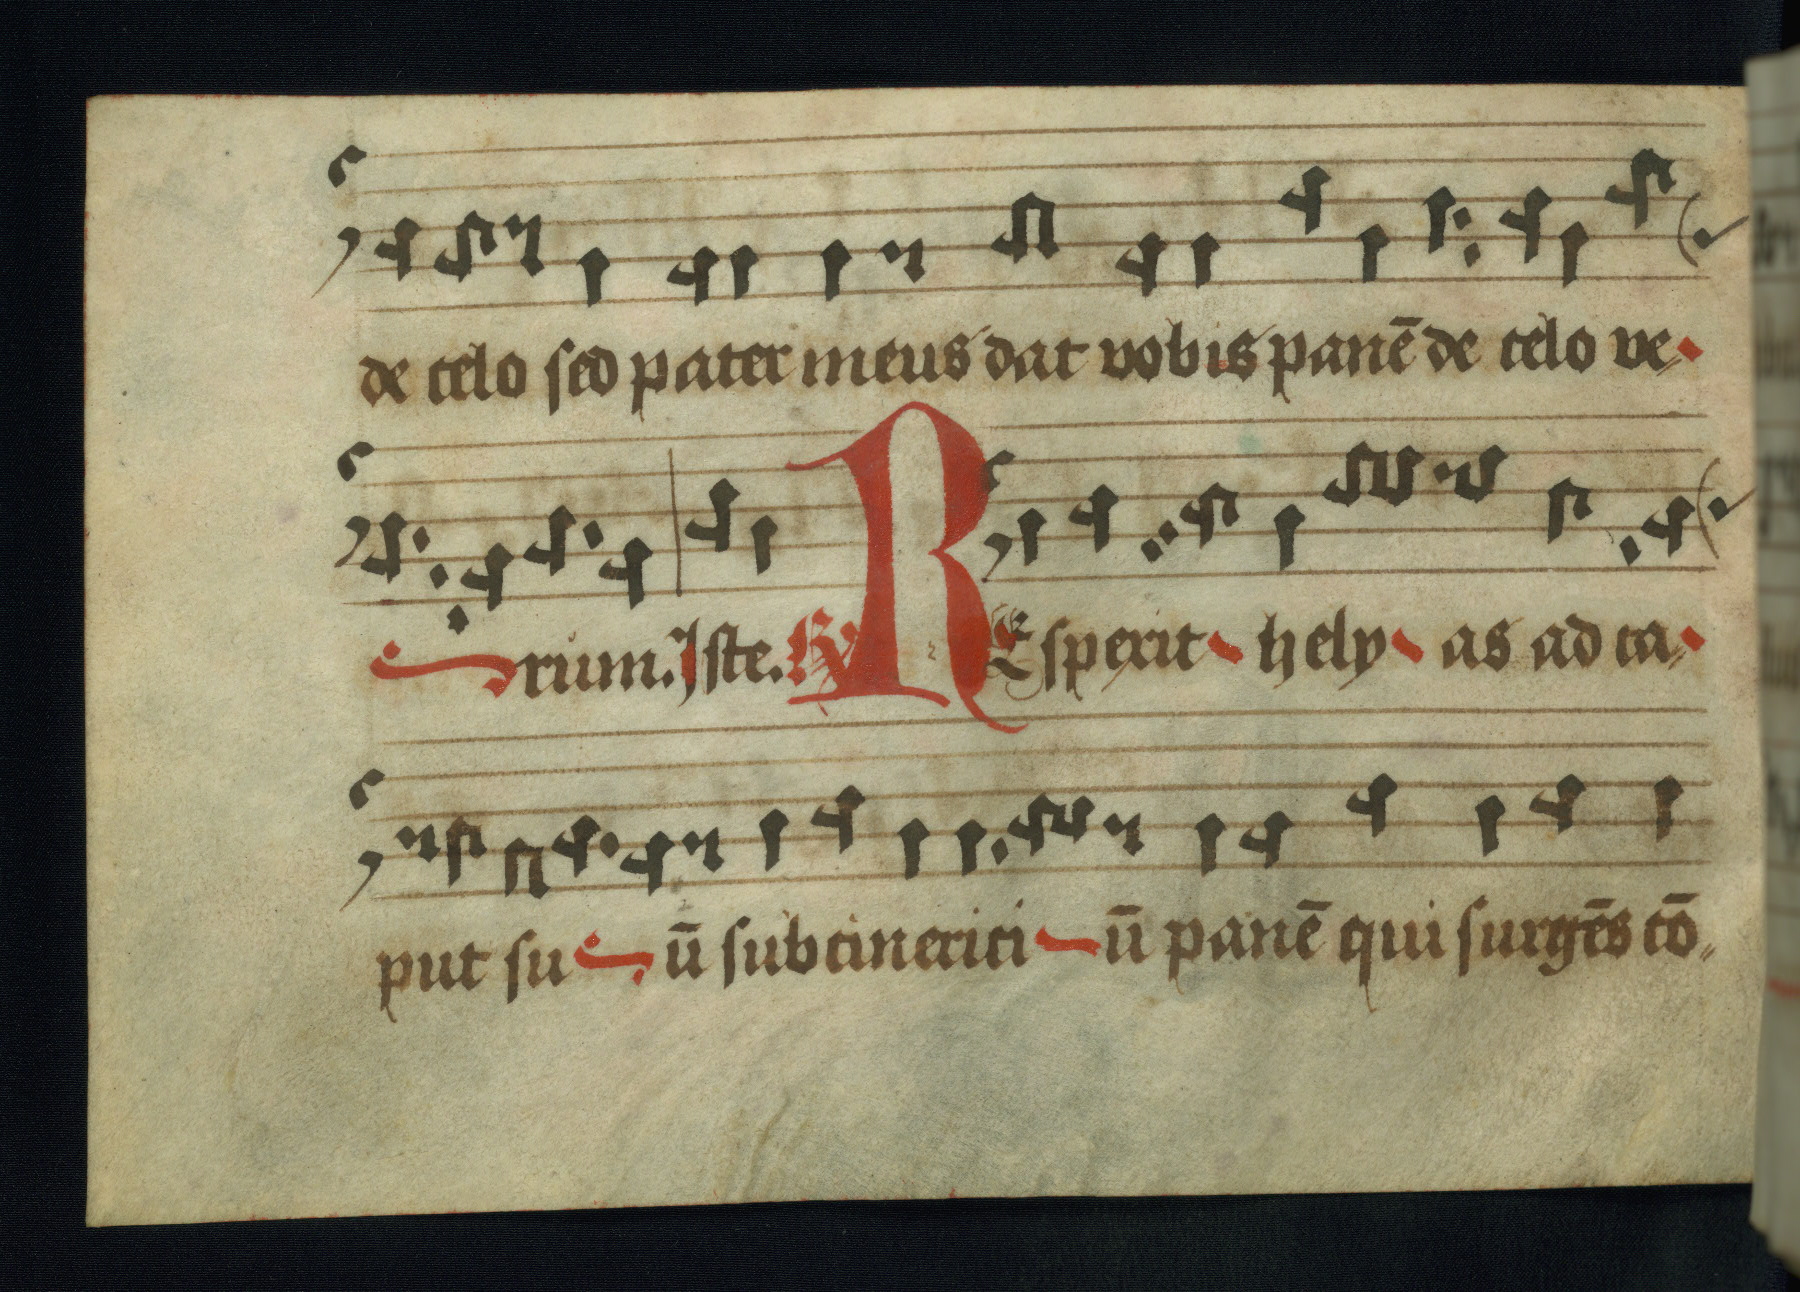 de celo sed pater meus dat vobis panē de celo ve
rum. Iste. R̸ REspexit hely as ad ca
put su ū subcinerici ū panē qui surgēs cō